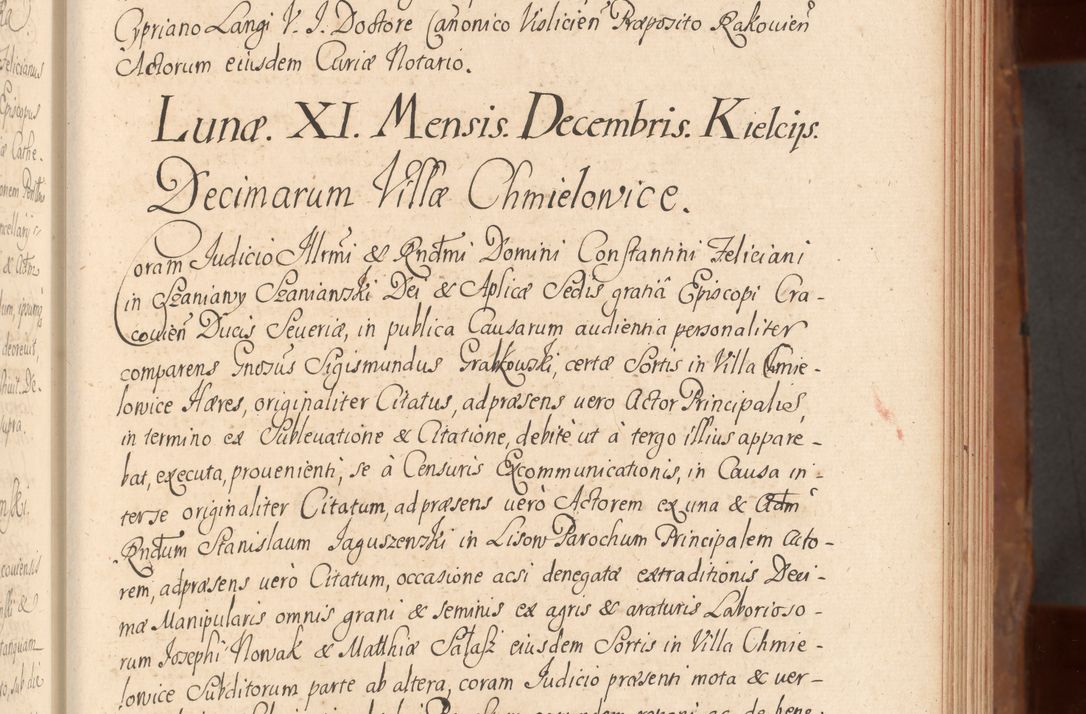 Cypriano Langi V. J. Doctore Canonico Vislicien̄ Præposito Rakovien̄
Actorum eiusdem Curiæ Notario.
Lunæ. XI. Mensis. Decembris. Kielcijs.
Decimarum Villæ Chmielowice.
Coram Judicio Illrmi & Rndmi Domini Constantini Feliciani
in Szaniawy Szaniawski Dei & Aplicæ Sedis gratiâ Episcopi Cra-
covien̄ Ducis Severiæ, in publica Causarum audientia personaliter
comparens Gnosus Sigismundus Grabkowski, certæ Sortis in Villa Chmie-
lowice Hæres, originaliter Citatus, ad præsens vero Actor Principalis,
in termino ex Sublevatione & Citatione, debitè ut à tergo illius appare-
bat, executa, provenienti, se à Censuris Excommunicationis, in Causa in-
ter se originaliter Citatum, ad præsens verò Actorem ex una &
Rndum Stanislaum Jaguszewski in Lisow Parochum Principalem Acto-
rem, ad præsens verò Citatum, occasione acsi denegatæ extraditionis Deci-
mæ Manipularis omnis grani & seminis ex agris & araturis Laborioso-
rum Josephi Nowak & Matthiæ Sałasz eiusdem Sortis in Villa Chmie-
lowice Subditorum parte ab altera, coram Judicio præsenti mota & ver-